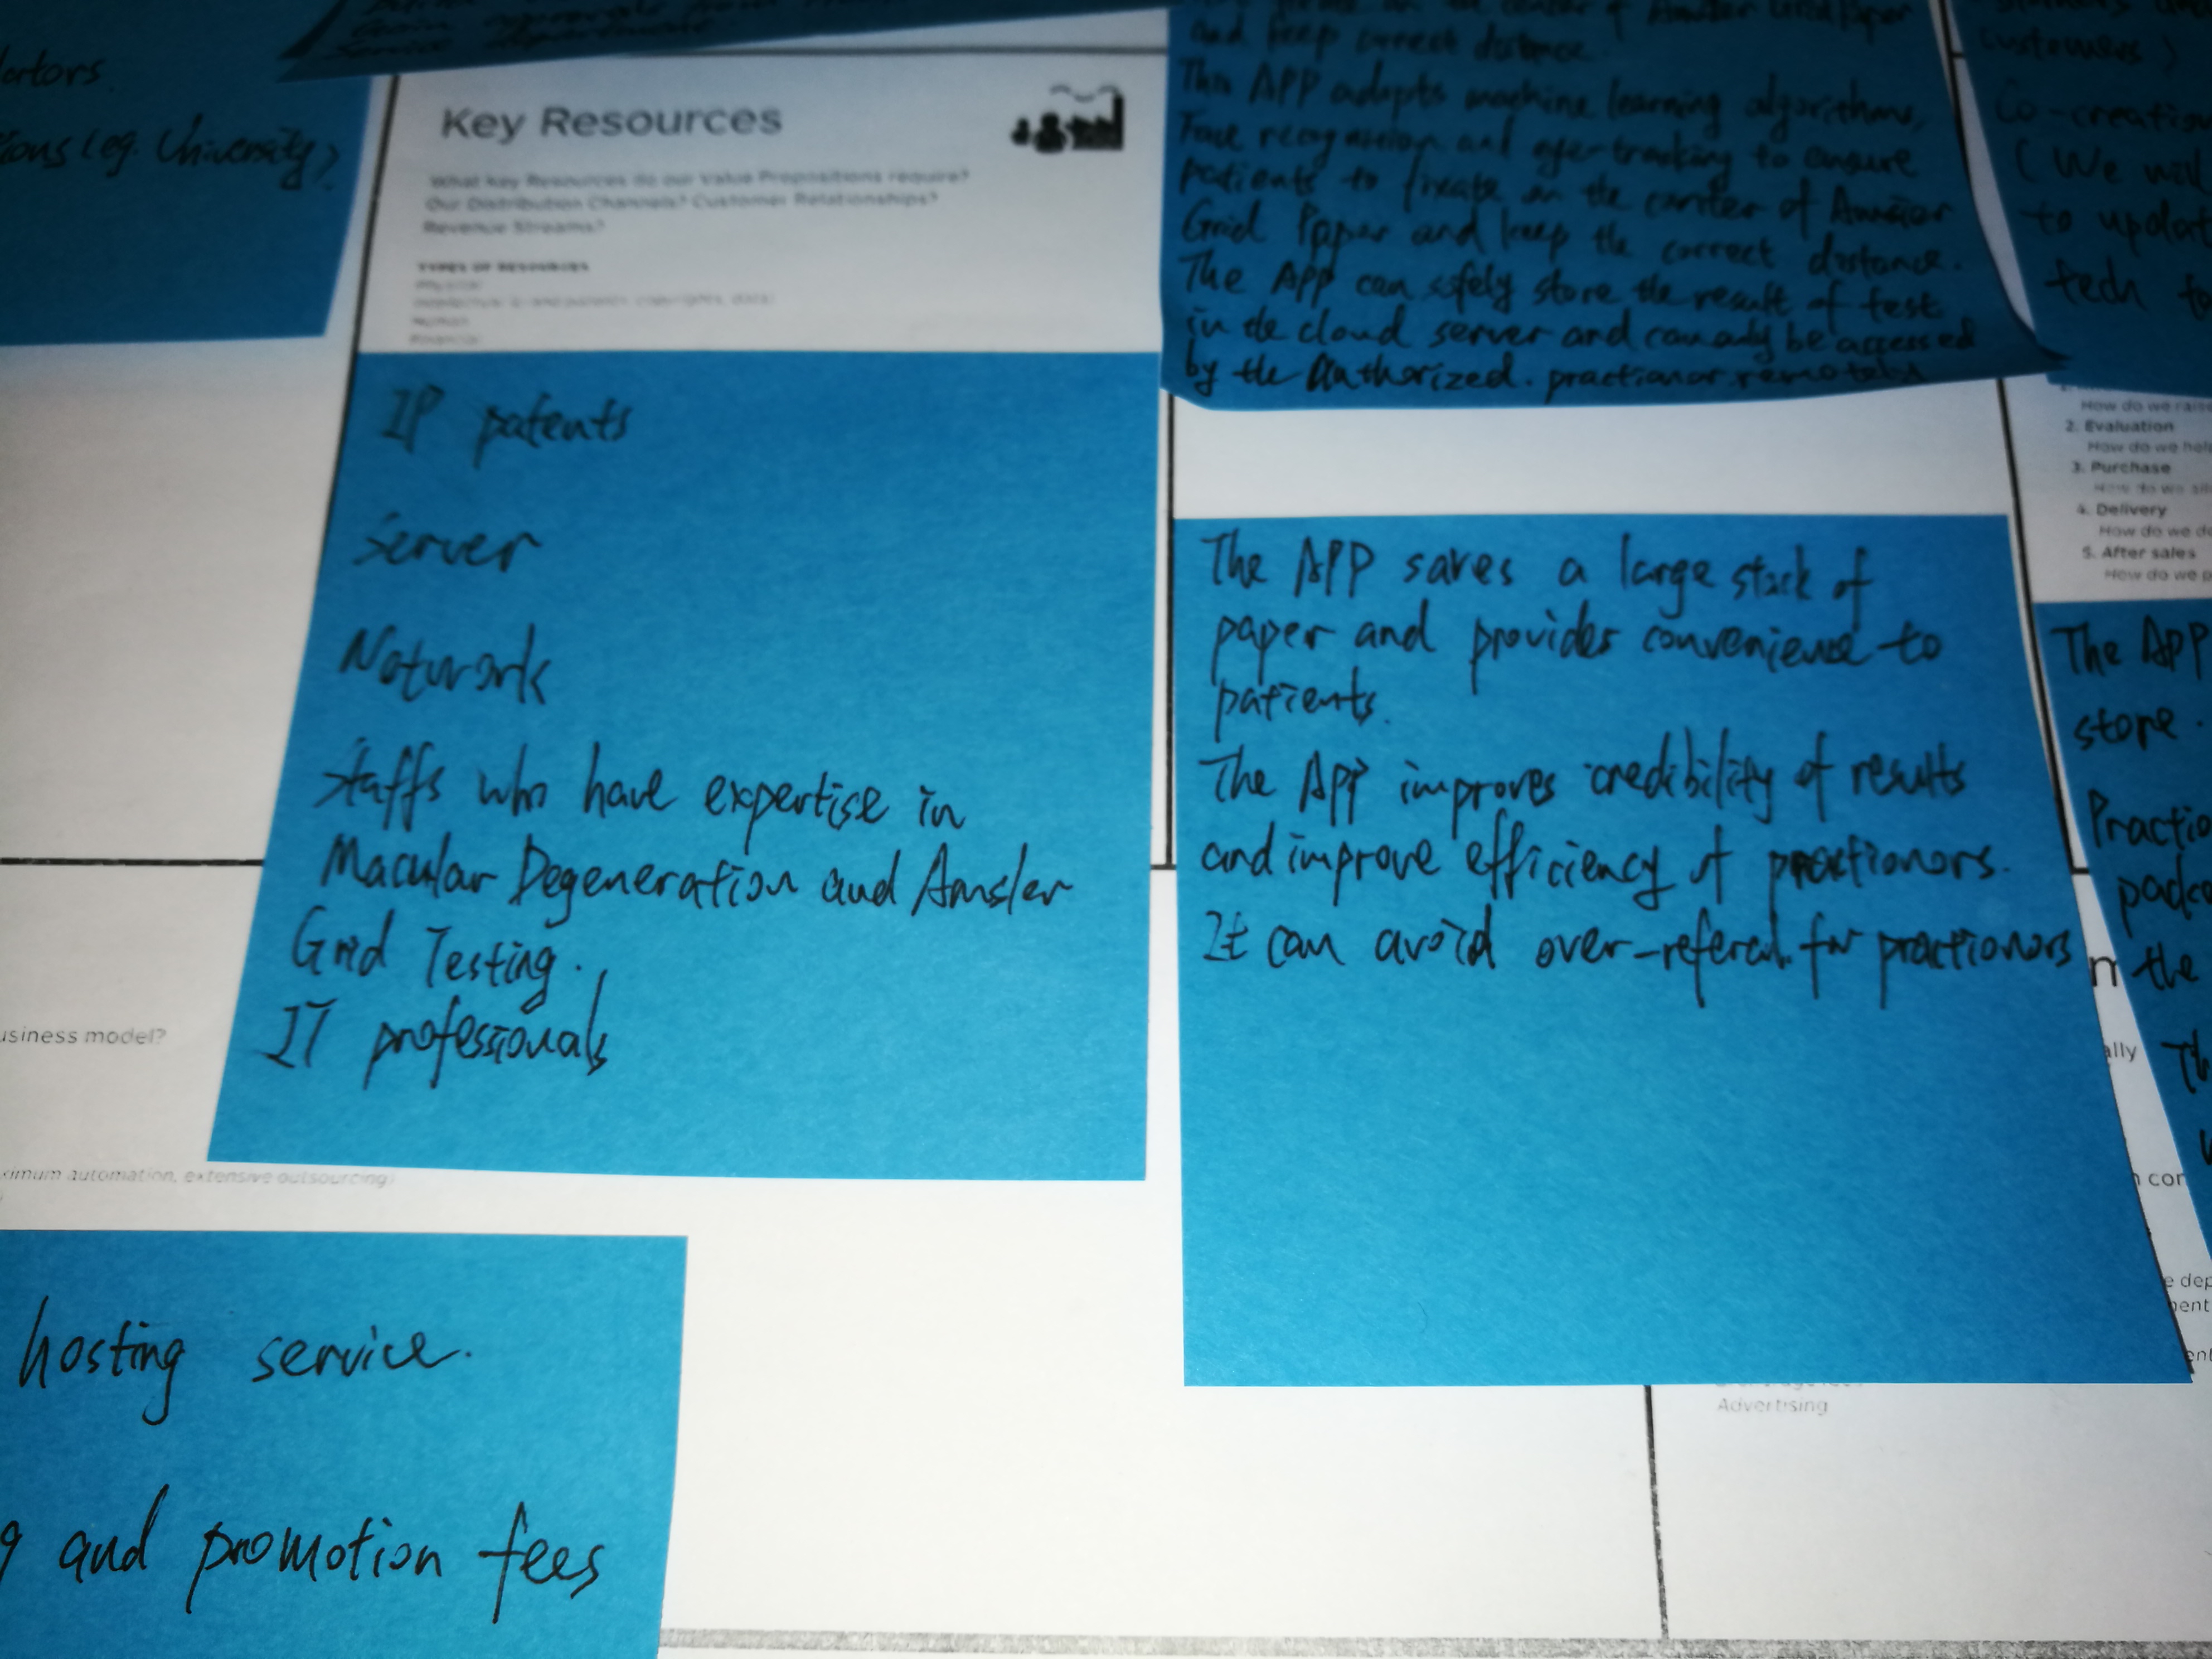 Service departments
and keep correct distance.
This APP adopts machine learning algorithms,
Face recognition and eye-tracking to ensure
patients to fixate on the center of Amsler
Grid Paper and keep the correct distance.
The APP can safely store the result of test
in the cloud server and can only be accessed
by the authorized. practionor remotely
customers)
Co-creation
(We will
to update
tech
(eg. University)
Key Resources
What Key Resources do our Value Propositions require?
Our Distribution Channels? Customer Relationships?
Revenue Streams?
TYPES OF RESOURCES
Physical
Human
Financial
IP patents
Server
Network
Staffs who have expertise in
Macular Degeneration and Amsler
Grid Testing.
IT professionals
The APP saves a large stack of
paper and provides convenience to
patients.
The APP improves credibility of results
and improve efficiency of practionors.
It can avoid over-referal for practionors
How do we
2. Evaluation
How do we
3. Purchase
How do we
4. Delivery
How do we
5. After sales
How do we
The APP
store.
the
usiness model?
ximum automation, extensive outsourcing)
hosting service.
g and promotion fees
Advertising